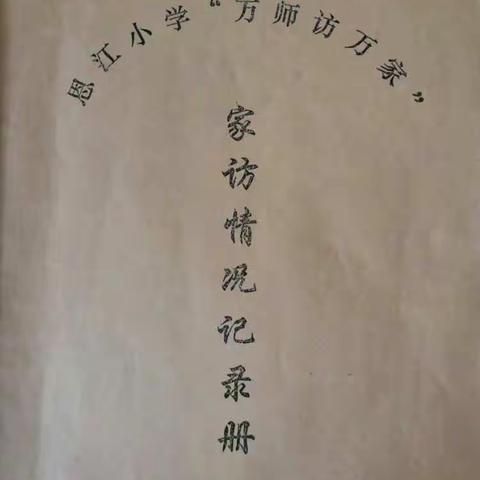 恩江小学“万师访万家”
家访情况记录册